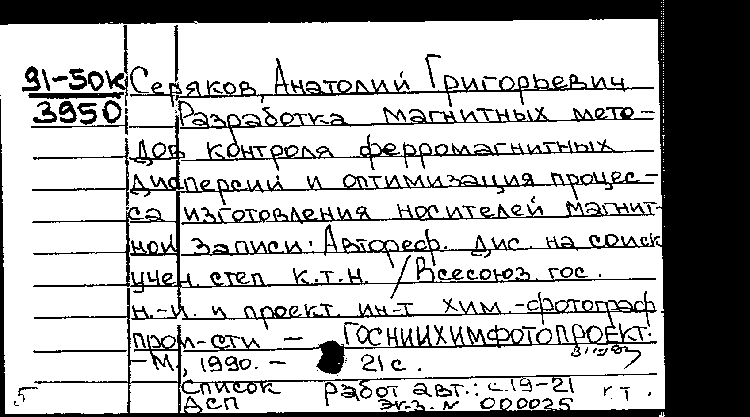 91-50к Серяков, Анатолий Григорьевич
3950 Разработка магнитных мето-
дов контроля ферромагнитных
дисперсий и оптимизация процес-
са изготовления носителей магнит-
ной записи: Автореф. дис. на соиск
учен. степ к.т.н. /Всесоюз. гос.
н.-и. и проект. ин-т хим.-фотограф
пром-сти — ГОСНИИХИМФОТОПРОЕКТ.
-М., 1990. - 21 с.
Список работ авт.: с.19-21 г т.
ДСП экз. N 000025